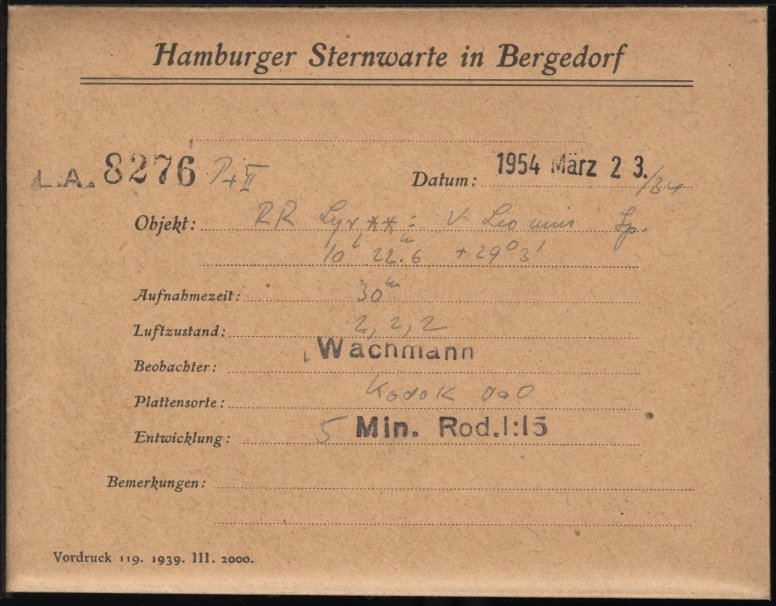 Hamburger Sternwarte in Bergedorf
L.A. 8276 P+II
Datum: 1954 März 23./24
Objekt: RR Lyr, **: V Leo min Sp.
10h 22m.6 +29° 3'
Aufnahmezeit: 30m
Luftzustand: 2, 2, 2
Beobachter: Wachmann
Plattensorte: Kodak OaO
Entwicklung: 5 Min. Rod.1:15
Bemerkungen:
Vordruck 119. 1939. III. 2000.